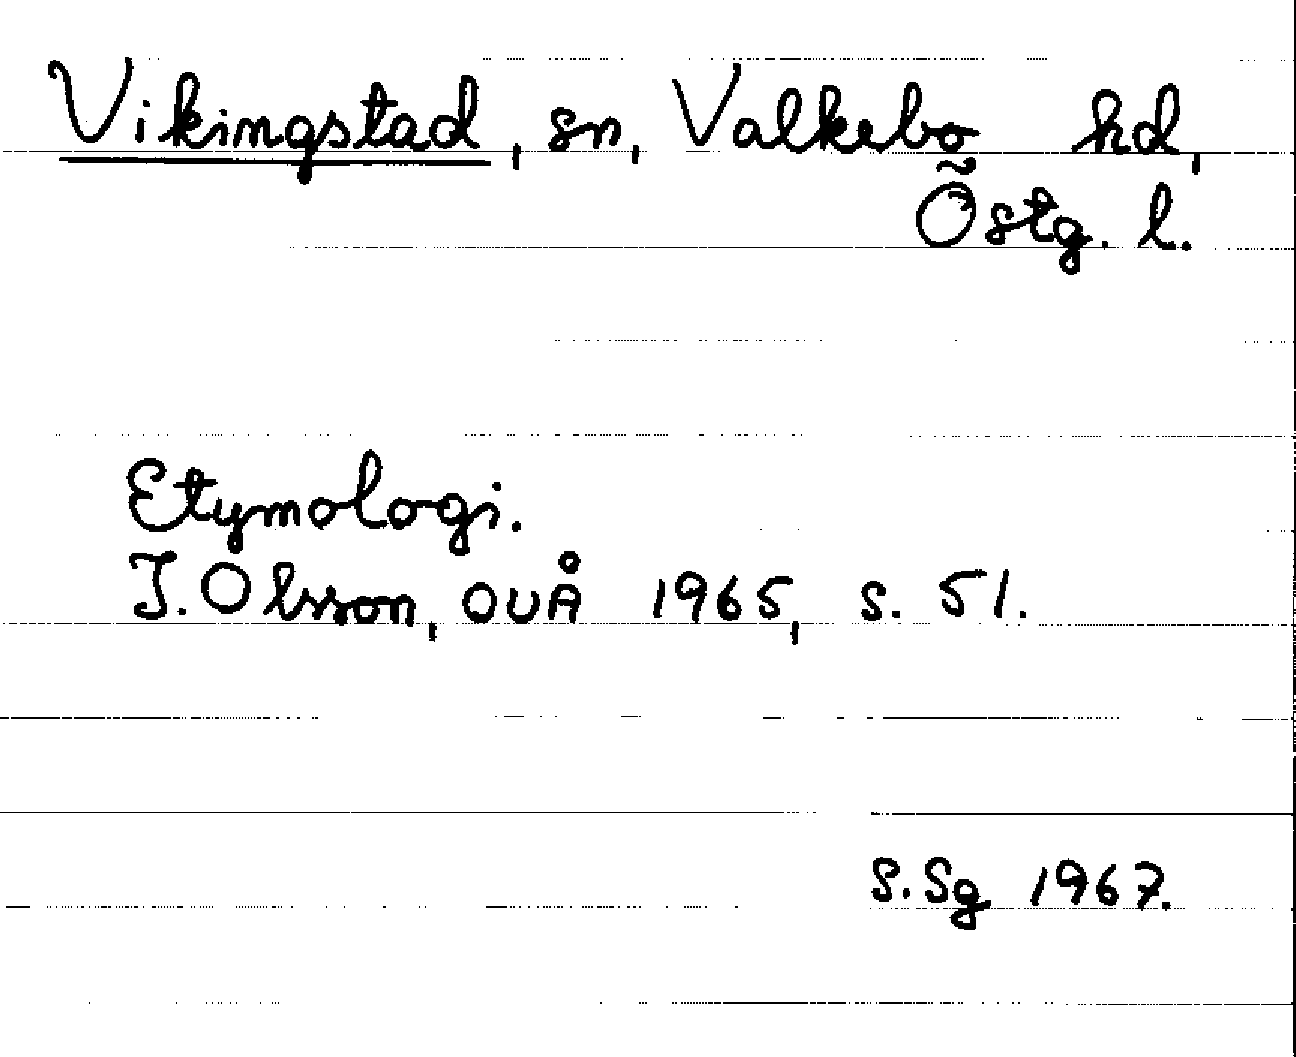 Vikingstad, sn, Valkebo hd,
Östg. l.
Etymologi.
I. Olsson, OUÅ 1965, s. 51.
S. Sg 1967.